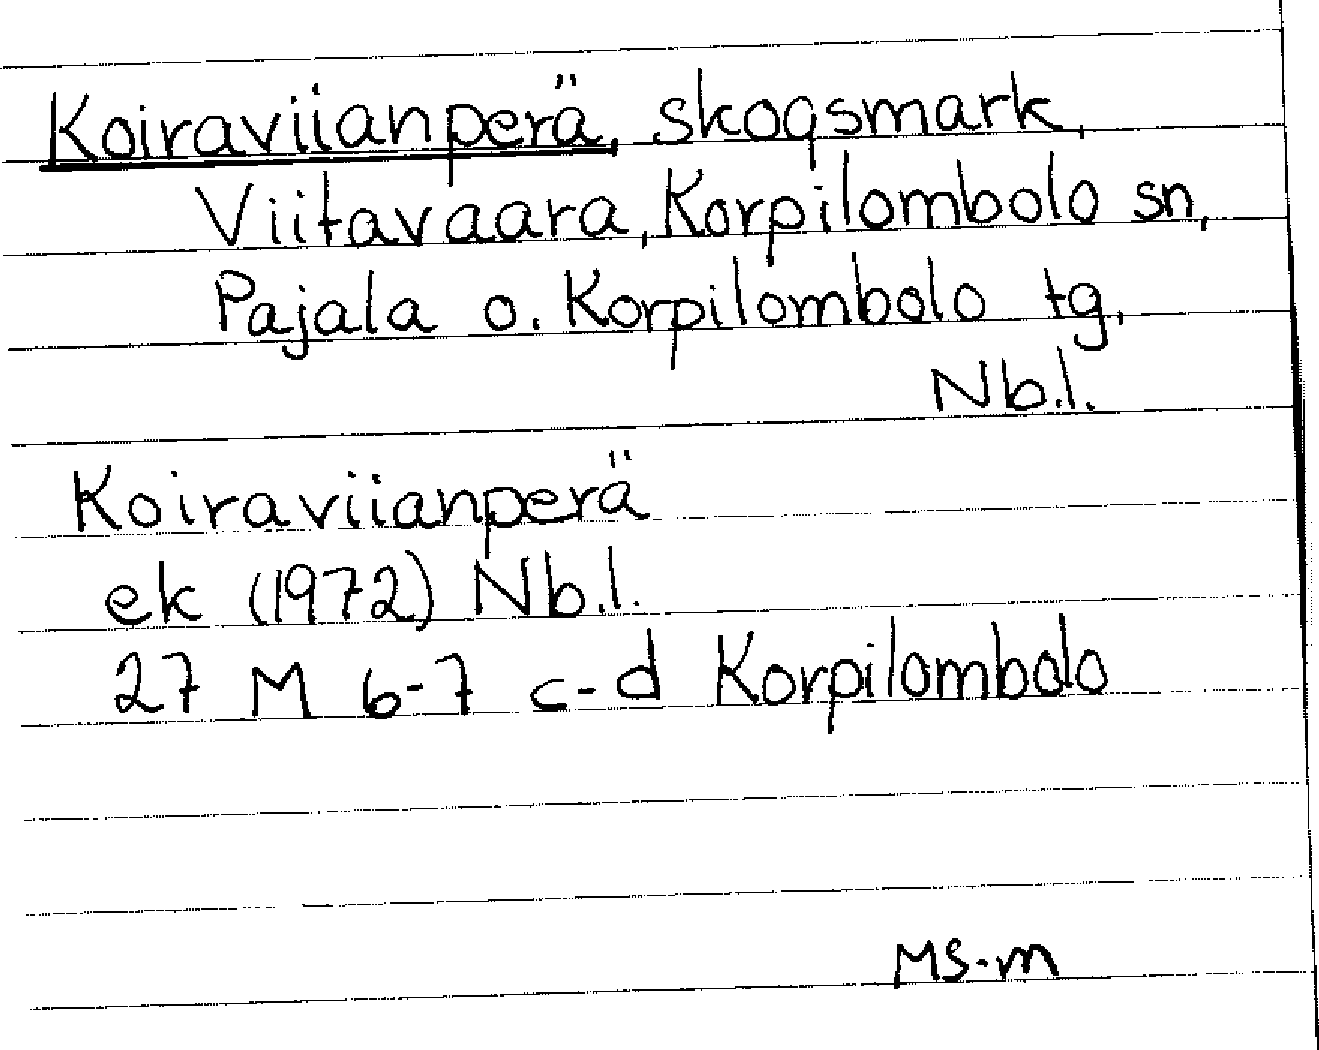 Koiraviianperä, skogsmark,
Viitavaara, Korpilombolo sn,
Pajala o. Korpilombolo tg,
Nb.l.
Koiraviianperä
ek (1972) Nb.l.
27 M 6-7 c-d Korpilombolo
MS-m